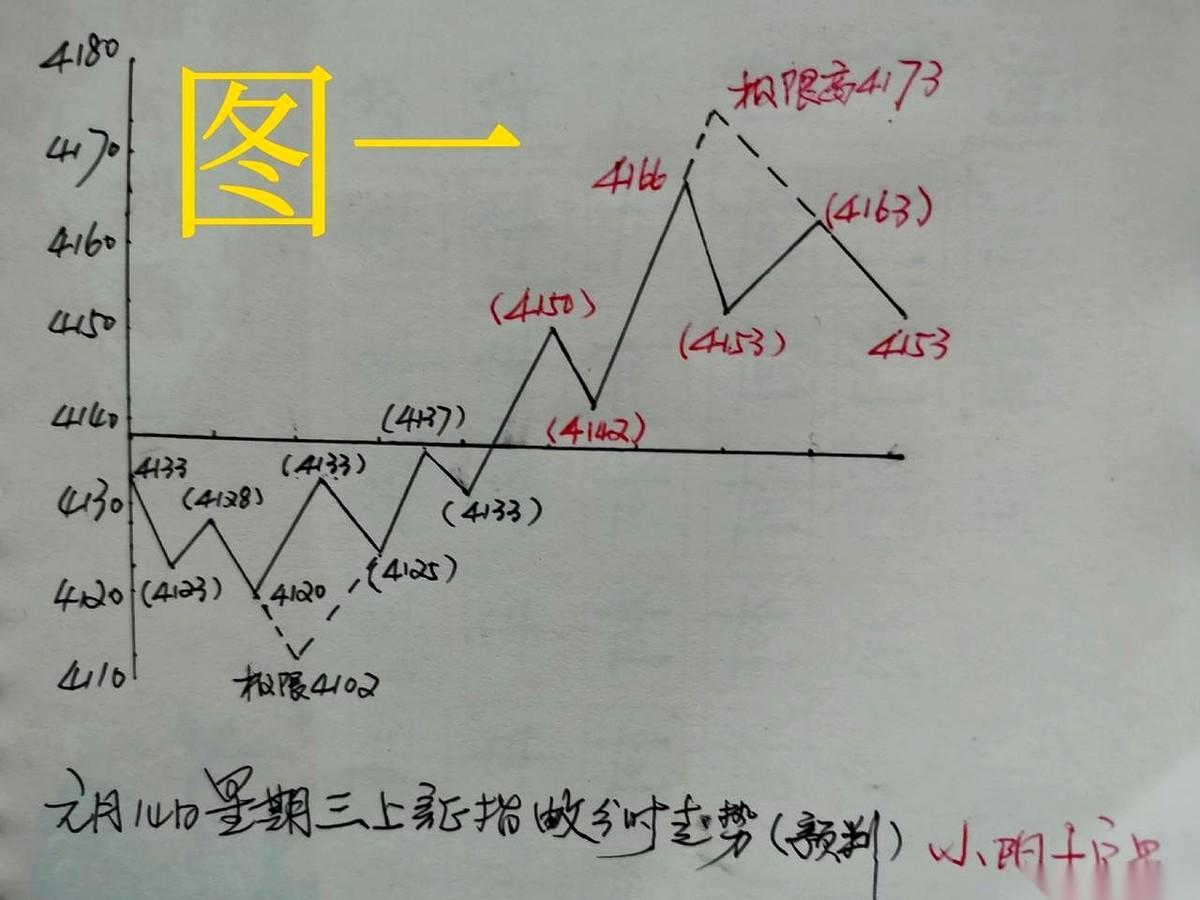 图一
4180
极限高4173
4170
4166
4160
(4163)
4150
(4150)
(4153)
4153
4140
(4137)
(4142)
4133
(4128)
(4133)
4130
(4133)
(4123)
4120
4120
(4125)
4110
极限4102
元月14日星期三上证指数分时走势(预判)